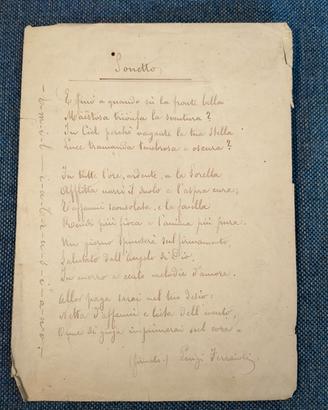 Sonetto
E fino a quando su la fronte bella
Maestosa trionfa la sventura?
In Ciel perchè vagante la tua stella
Luce tramanda tenebrosa e oscura?
In tutte l'ore, ardente, a la Sorella
Afflitta narri il duolo e l'aspra cura;
E affanni consolata, e la favella
Rendi più fioca e l'anima più pura.
Un giorno spunterà sul firmamento,
Salutato dall'Angelo di Dio,
In mezzo a celesti melodie d'amore.
Allor paga sarai nel tuo desio;
Netta d'affanni e lieta dell'evento,
Orme di gioja imprimerai sul core.
(firmato) Luigi Ferraioli